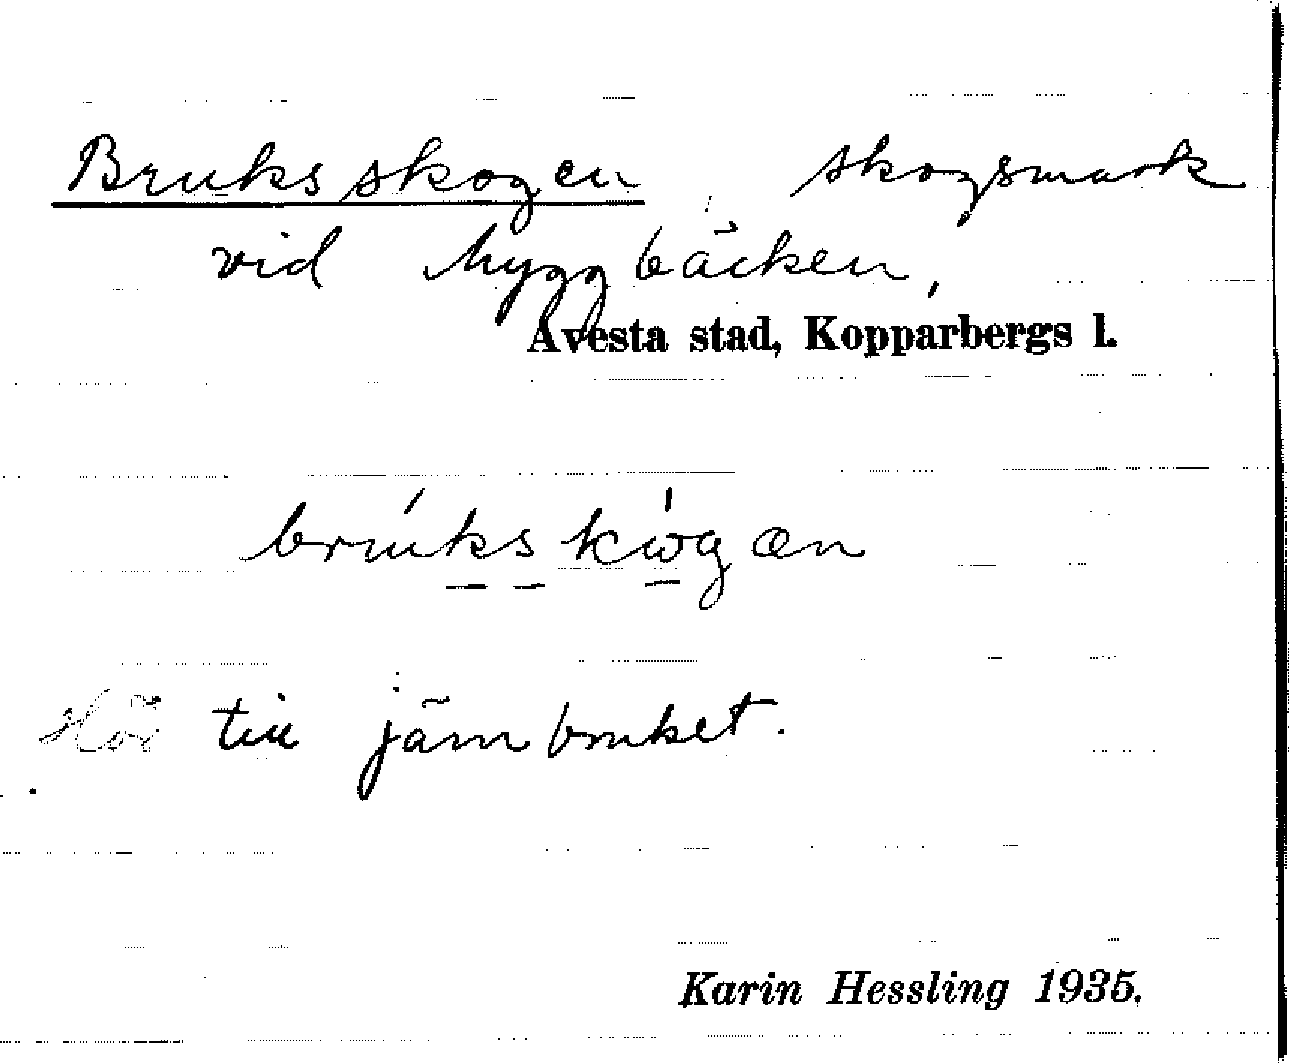 Bruksskogen skogsmark
vid Myggbäcken,
Avesta stad, Kopparbergs l.
brúkskωgæn
till järnbruket.
Karin Hessling 1935.